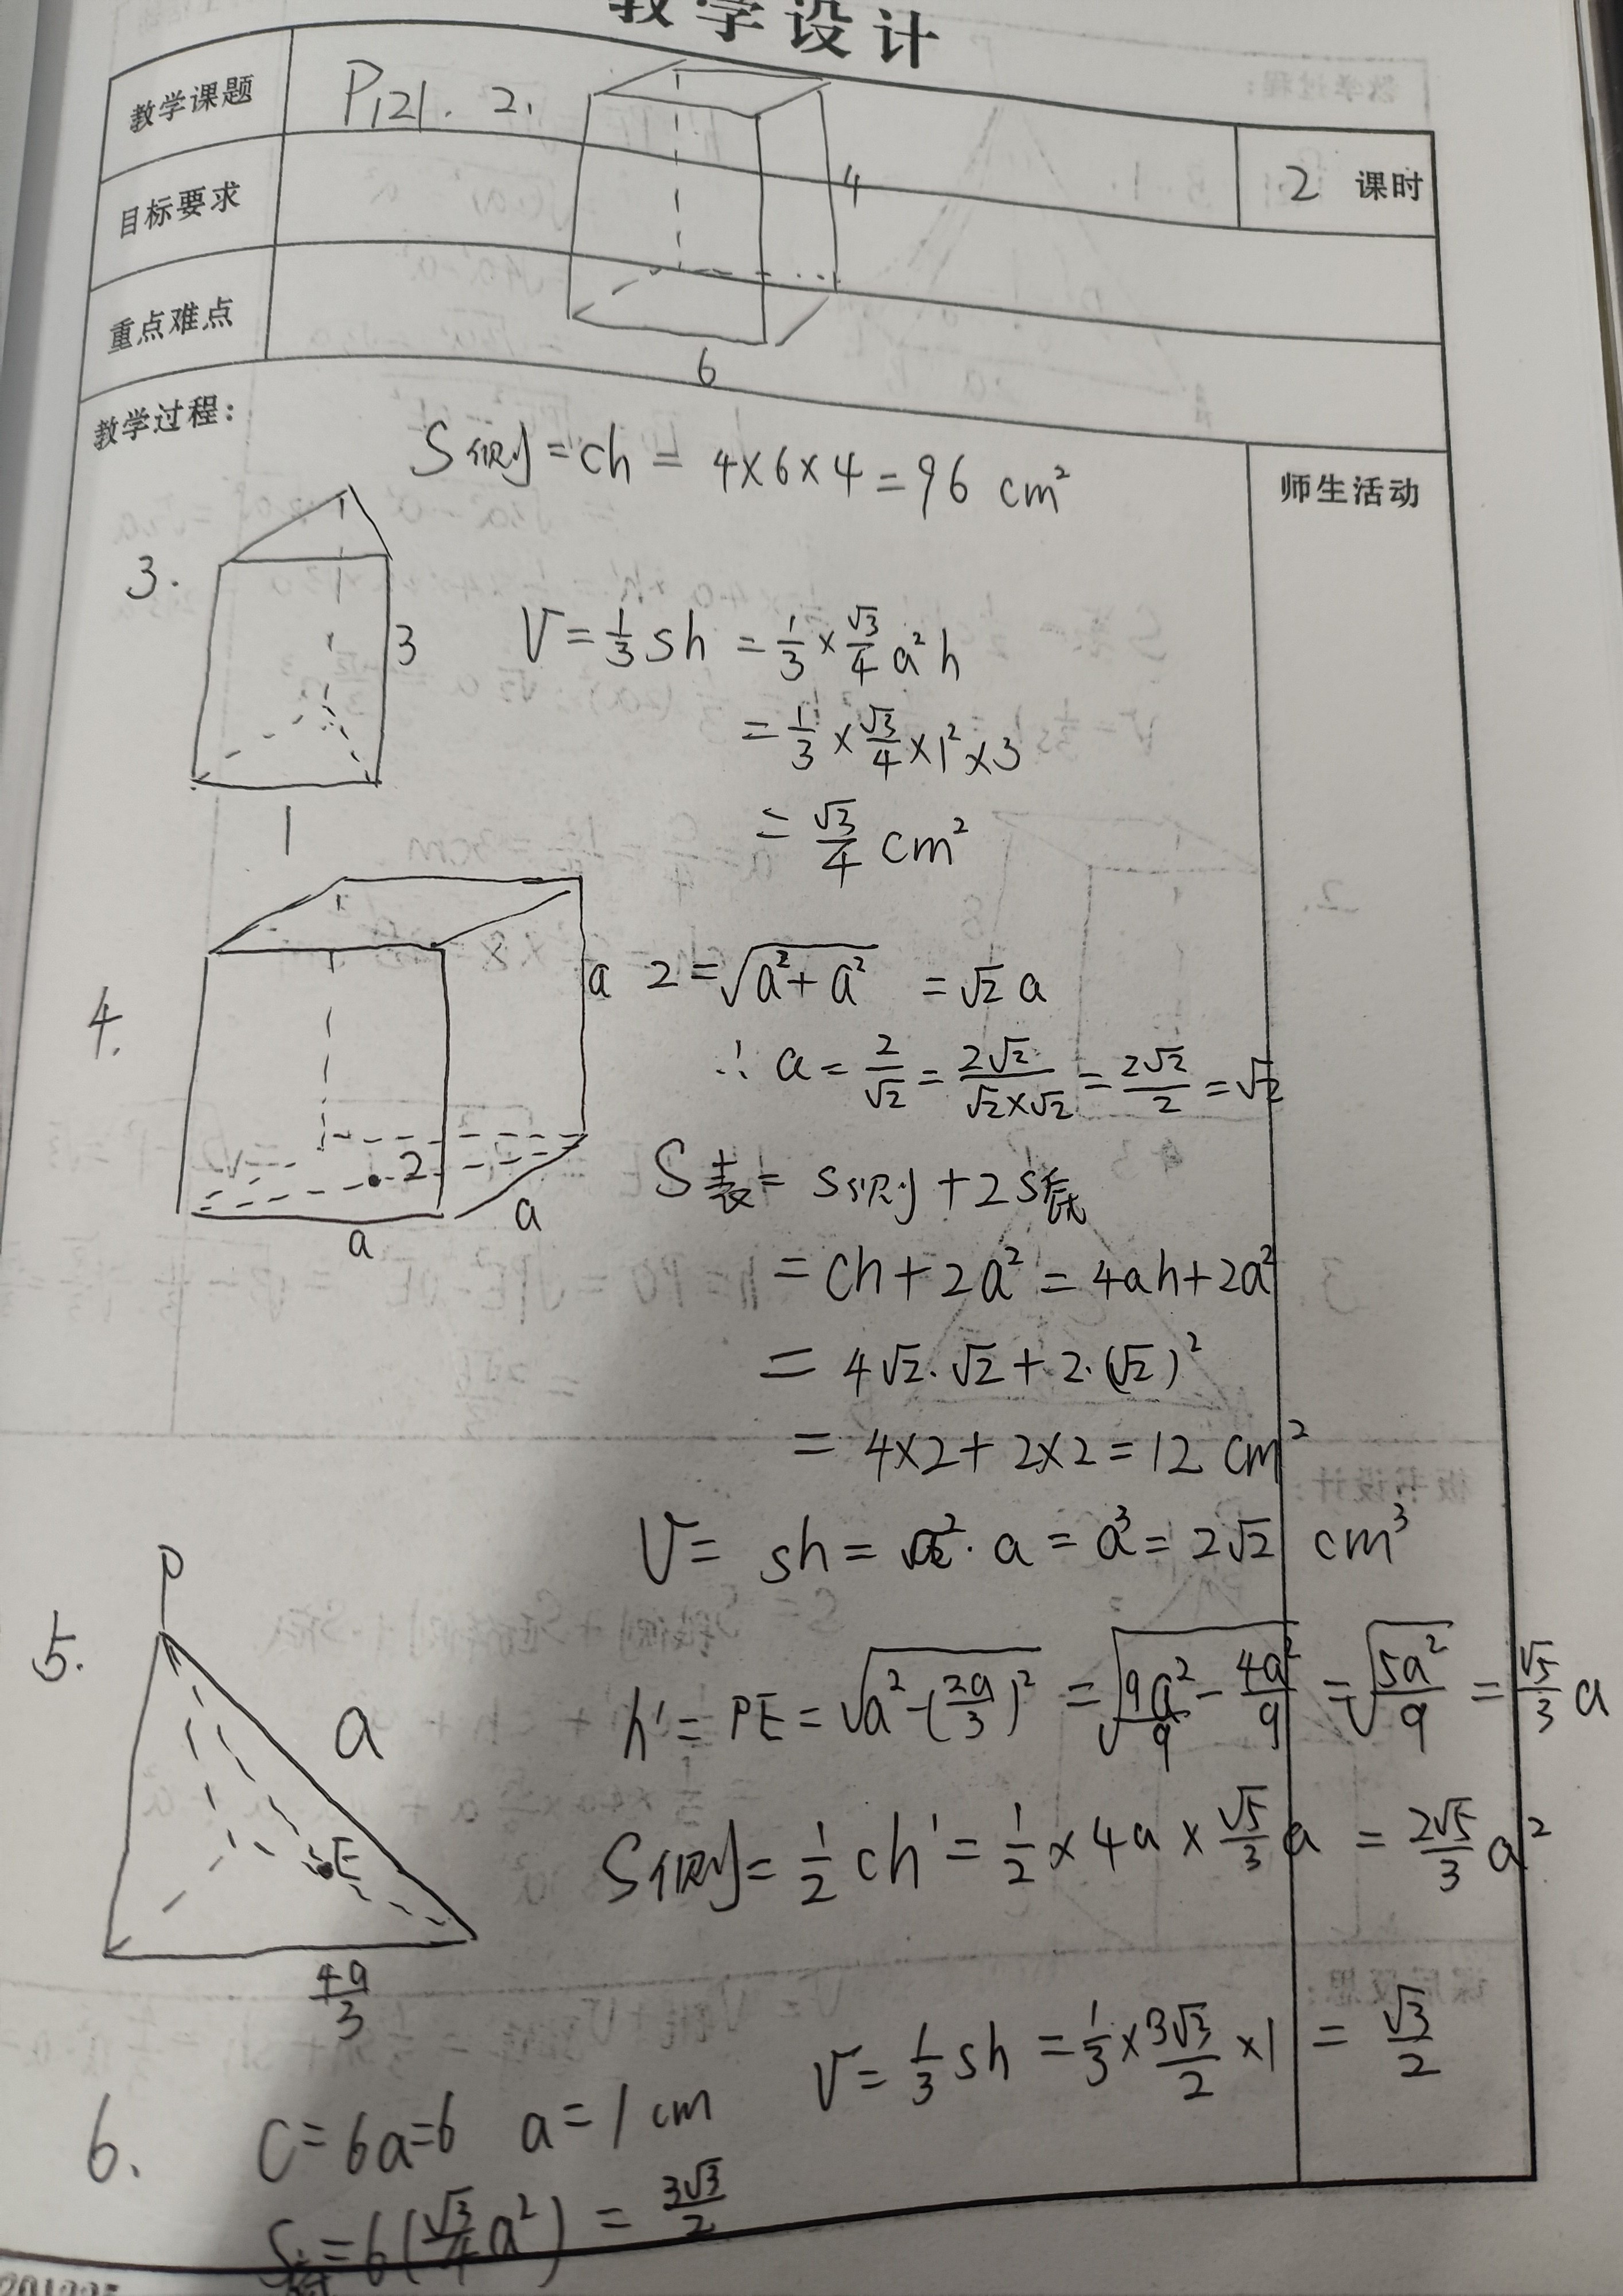 教学设计
教学课题 P121. 2. 2 课时
目标要求 4
重点难点
6
教学过程: 师生活动
S侧=ch=4×6×4=96 cm²
3. 3 1
V=1/3 sh=1/3×√3/4 a²h
=1/3×√3/4×1²×3
=√3/4 cm²
4. a 2 a a
2=√(a²+a²) =√2 a
∴a=2/√2=2√2/(√2×√2)=2√2/2=√2
S表=S侧+2S底
=ch+2a²=4ah+2a²
=4√2·√2+2·(√2)²
=4×2+2×2=12 cm²
V=sh=a²·a=a³=2√2 cm³
5. P a E 4a/3
h'=PE=√(a²-(2a/3)²)=√(9a²/9-4a²/9)=√(5a²/9)=√5/3 a
S侧=1/2 ch'=1/2×4a×√5/3 a=2√5/3 a²
6. C=6a=6 a=1cm V=1/3 sh=1/3×3√3/2×1=√3/2
S底=6(√3/4 a²)=3√3/2